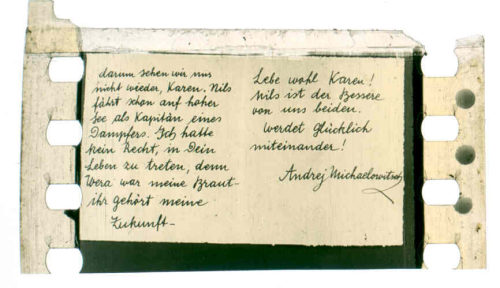 darum sehen wir uns
nicht wieder, Karen. Nils
fährt schon auf hoher
See als Kapitän eines
Dampfers. Ich hatte
kein Recht, in Dein
Leben zu treten, denn
Wera war meine Braut-
ihr gehört meine
Zukunft-
Lebe wohl Karen!
Nils ist der Bessere
von uns beiden.
Werdet Glücklich
miteinander!
Andrej Michaelowitsch